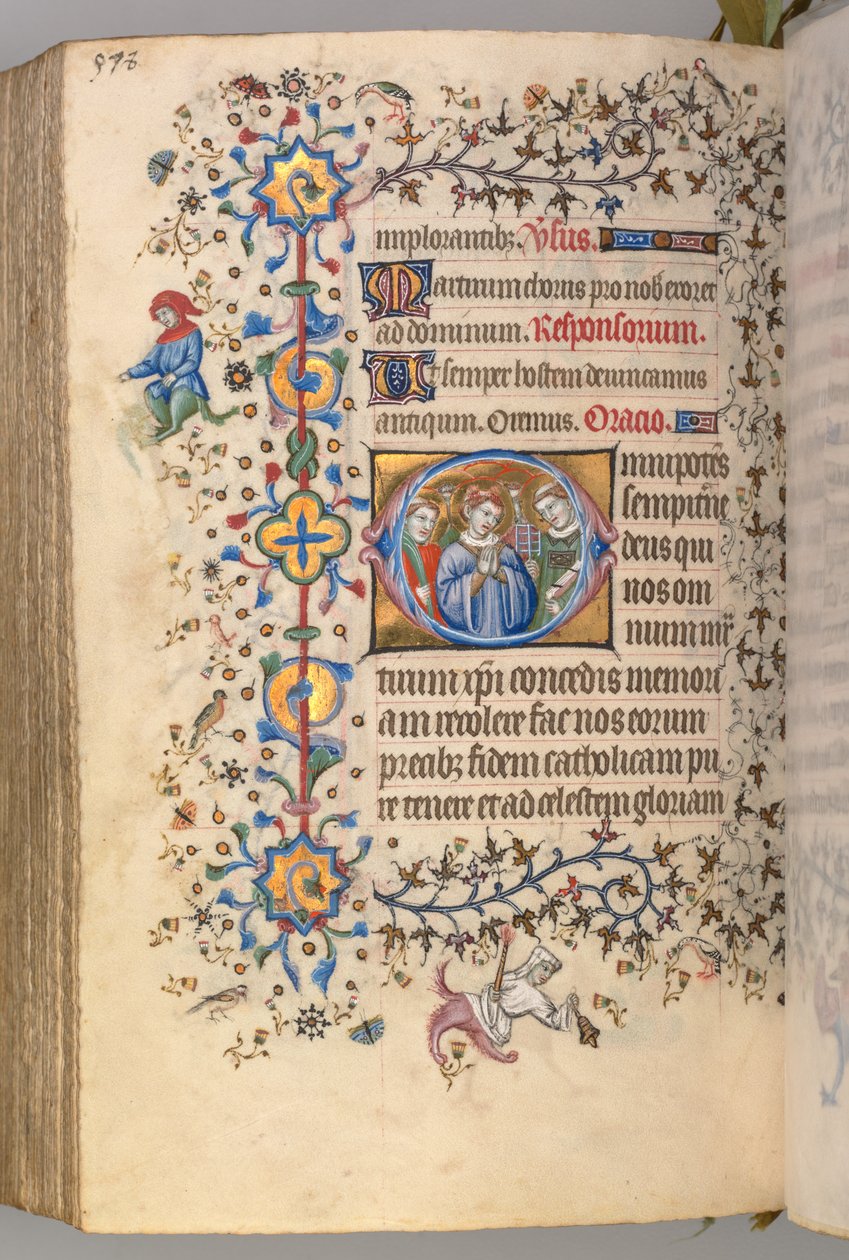 573
implorantibꝫ. Ṽsus.
Martirum chorus pro nob̃ exoret
ad dominum. Responsorium.
Ut semper hostem deuincamus
antiqum. Oremus. Oracio.
Omnipotẽs
sempit̃ne
deus qui
nos om
nium mr̃
tirum xp̃i concedis memori
am recolere fac nos eorum
precibꝫ fidem catholicam pu
re tenere et ad celestem gloriam